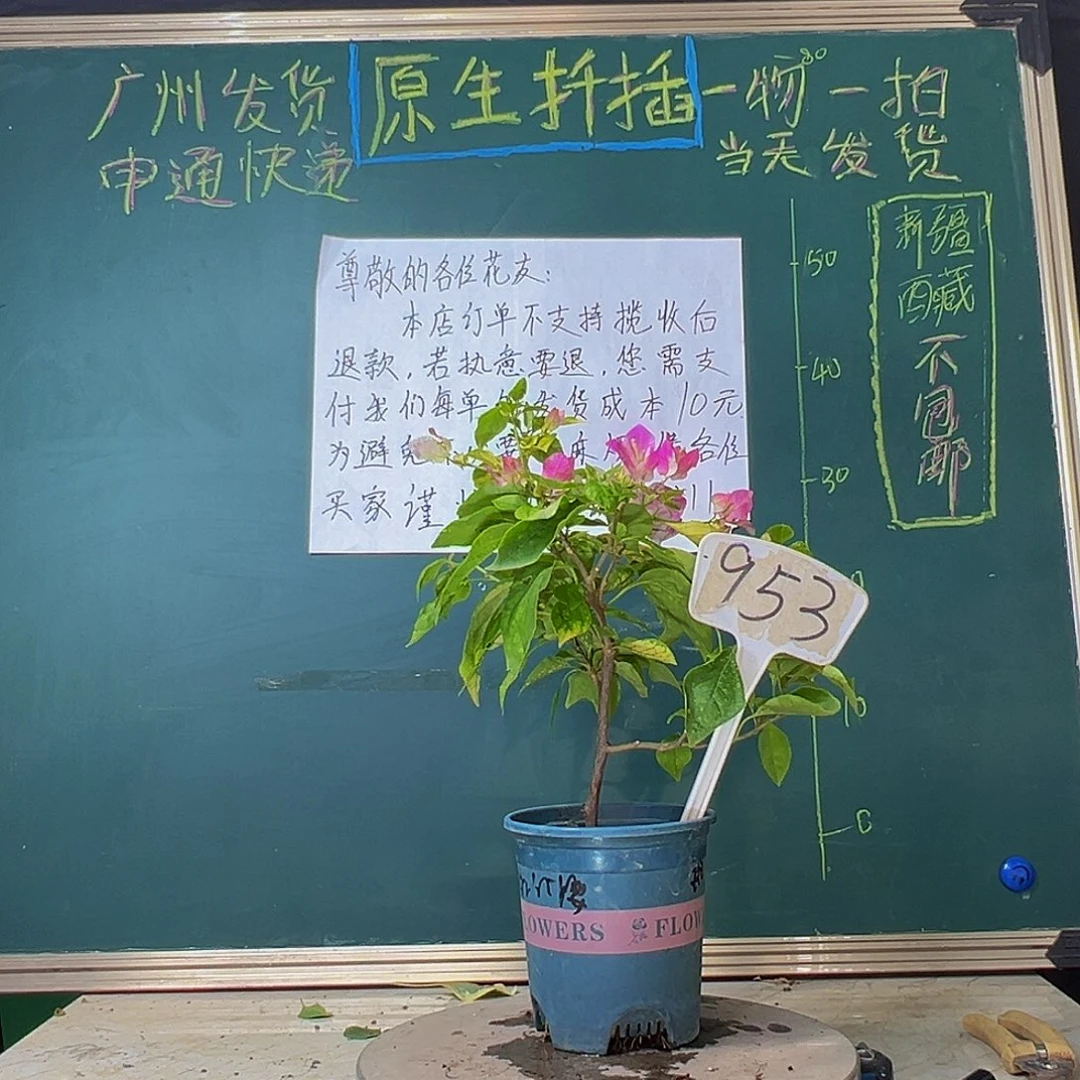 广州发货
申通快递
原生扦插
一物一拍
当天发货
新疆西藏不包邮
50
40
30
0
尊敬的各位花友:
本店订单不支持揽收后
退款,若执意要退,您需支
付我们每单的发货成本10元
为避免 各位
买家谨
953
FLOWERS FLOW